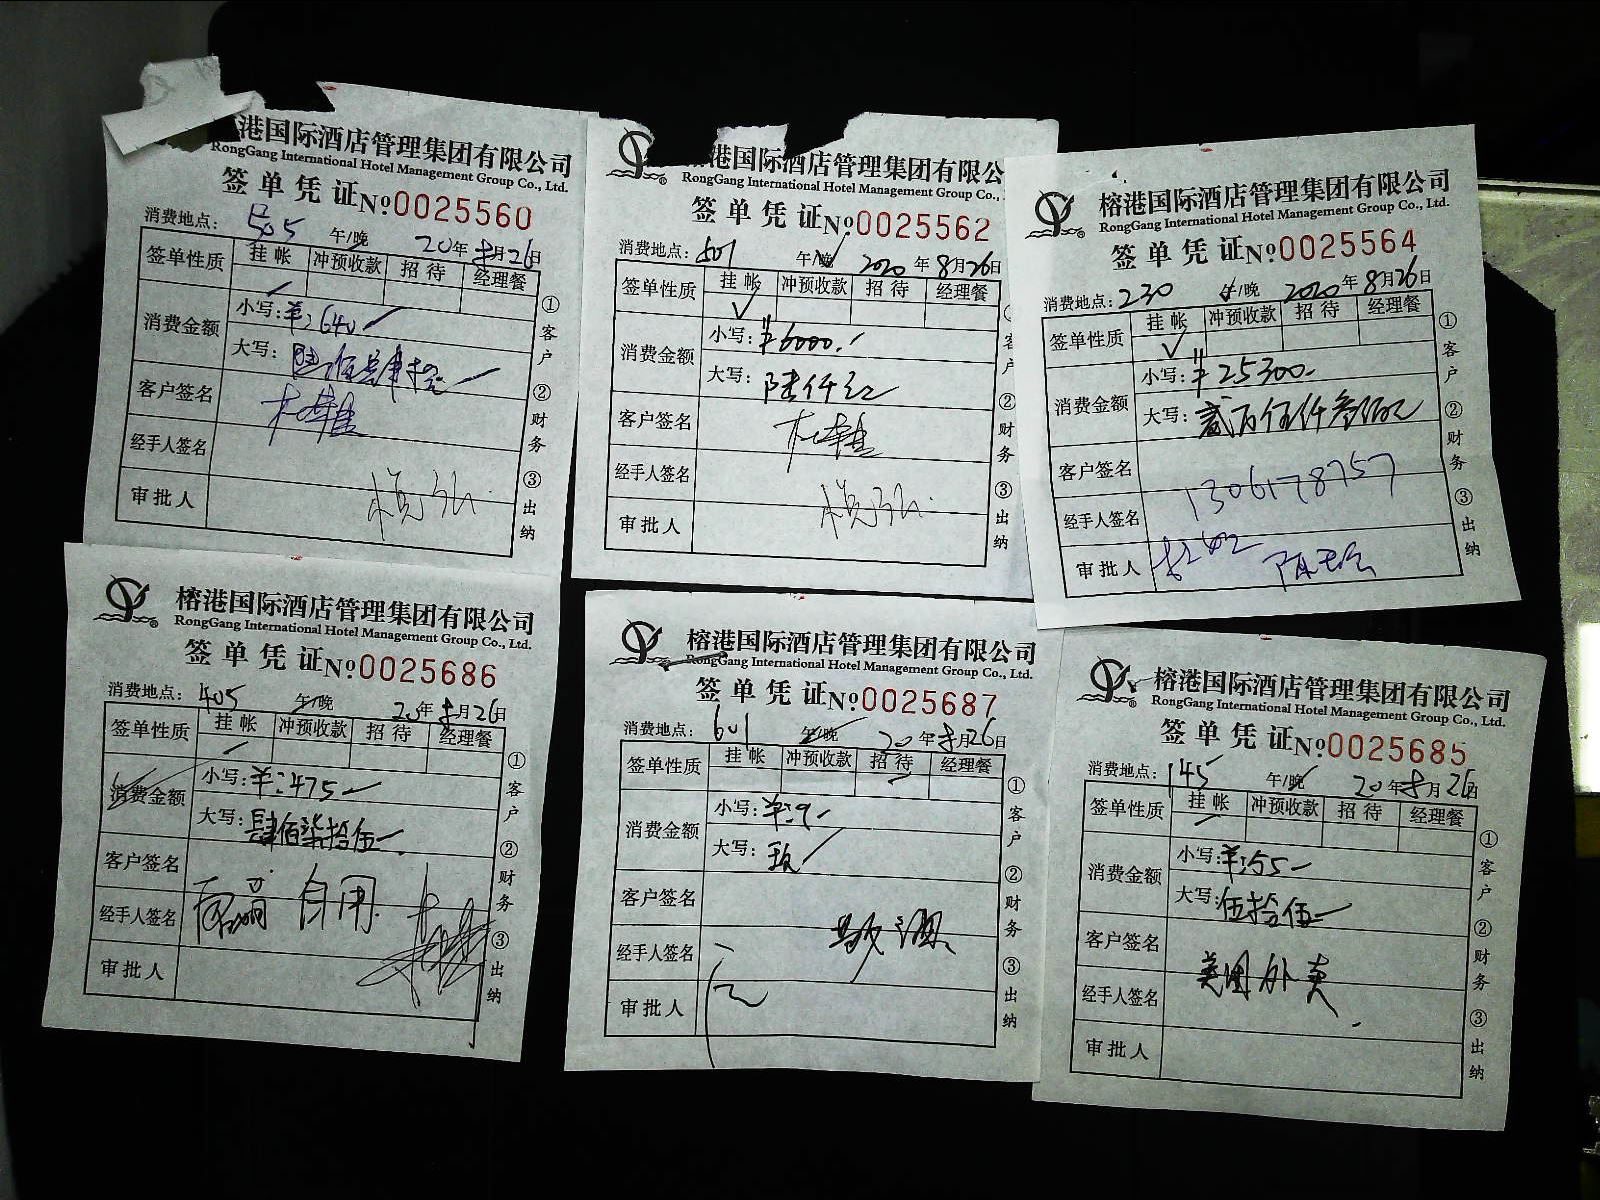 港国际酒店管理集团有限公司
RongGang International Hotel Management Group Co., Ltd.
签单凭证 №0025560
消费地点: 505 午/晚 20年 8月26日
签单性质 挂帐 冲预收款 招待 经理餐
消费金额 小写: ¥:640
大写: 陆佰肆拾
客户签名
经手人签名
审批人
①客户 ②财务 ③出纳
港国际酒店管理集团有限公
RongGang International Hotel Management Group Co.,
签单凭证 №0025562
消费地点: 501 午/晚 2020年8月26日
签单性质 挂帐 冲预收款 招待 经理餐
消费金额 小写: ¥6000.
大写: 陆仟元
客户签名
经手人签名
审批人
①客户 ②财务 ③出纳
榕港国际酒店管理集团有限公司
RongGang International Hotel Management Group Co., Ltd.
签单凭证 №0025564
消费地点: 230 午/晚 2020年8月26日
签单性质 挂帐 冲预收款 招待 经理餐
消费金额 小写: ¥25300.
大写: 贰万伍仟叁佰元
客户签名 1306178757
经手人签名
审批人
①客户 ②财务 ③出纳
榕港国际酒店管理集团有限公司
RongGang International Hotel Management Group Co., Ltd.
签单凭证 №0025686
消费地点: 405 午/晚 20年8月26日
签单性质 挂帐 冲预收款 招待 经理餐
消费金额 小写: ¥:475
大写: 肆佰柒拾伍
客户签名
经手人签名 自用
审批人
①客户 ②财务 ③出纳
榕港国际酒店管理集团有限公司
RongGang International Hotel Management Group Co., Ltd.
签单凭证 №0025687
消费地点: 601 午/晚 20年8月26日
签单性质 挂帐 冲预收款 招待 经理餐
消费金额 小写: ¥:9
大写: 玖
客户签名
经手人签名
审批人
①客户 ②财务 ③出纳
榕港国际酒店管理集团有限公司
RongGang International Hotel Management Group Co., Ltd.
签单凭证 №0025685
消费地点: 145 午/晚 20年8月26日
签单性质 挂帐 冲预收款 招待 经理餐
消费金额 小写: ¥:55
大写: 伍拾伍
客户签名 美团外卖
经手人签名
审批人
①客户 ②财务 ③出纳